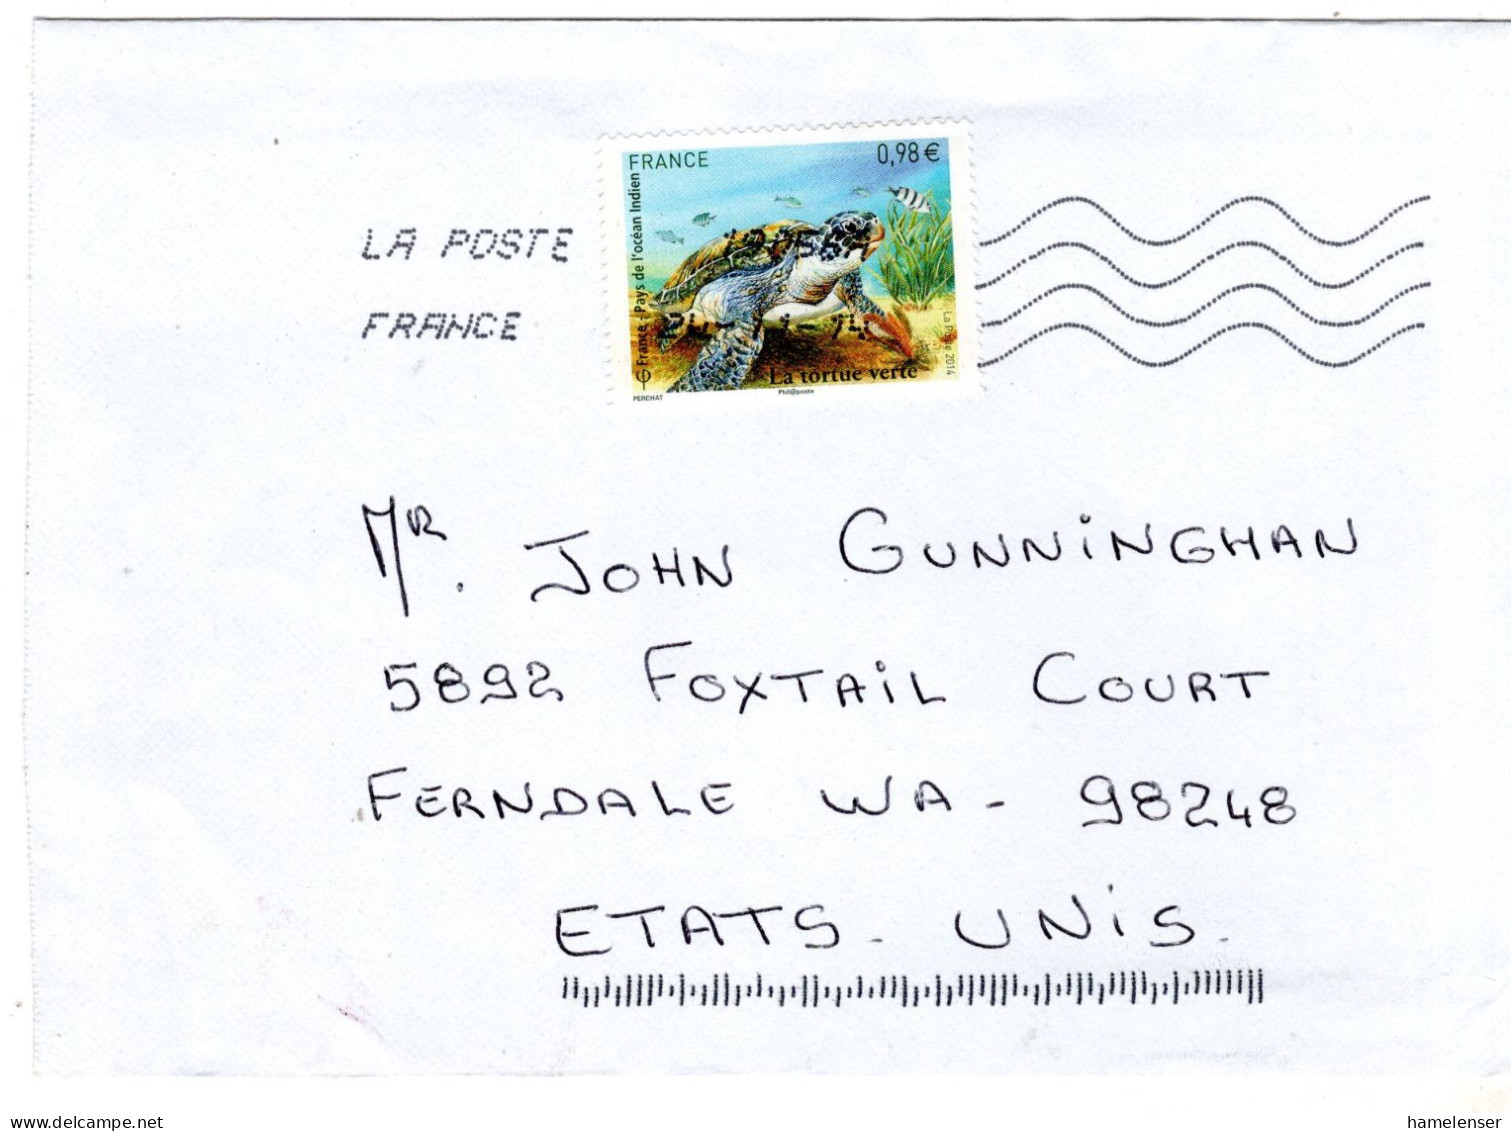 FRANCE 0,98 €
France - Pays de l'océan Indien
La Poste 2014
La tortue verte
PERCHAT Phil@poste
LA POSTE
FRANCE
MR. JOHN GUNNINGHAN
5892 FOXTAIL COURT
FERNDALE WA - 98248
ETATS - UNIS.
delcampe.net
hamelenser